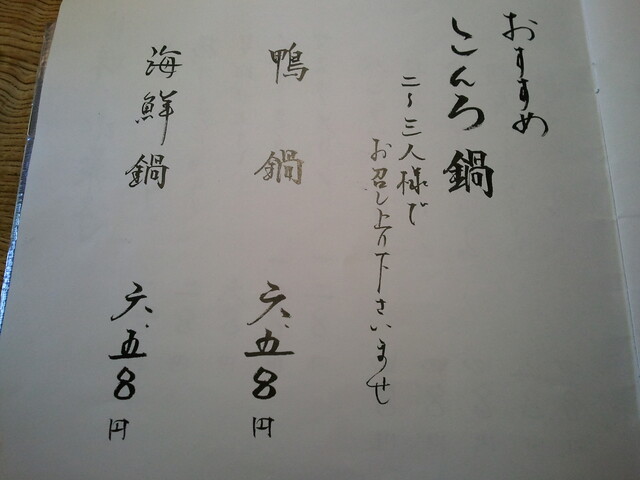 おすすめ
こんろ鍋
二〜三人様で
お召し上り下さいませ
鴨鍋 六、五8円
海鮮鍋 六、五8円